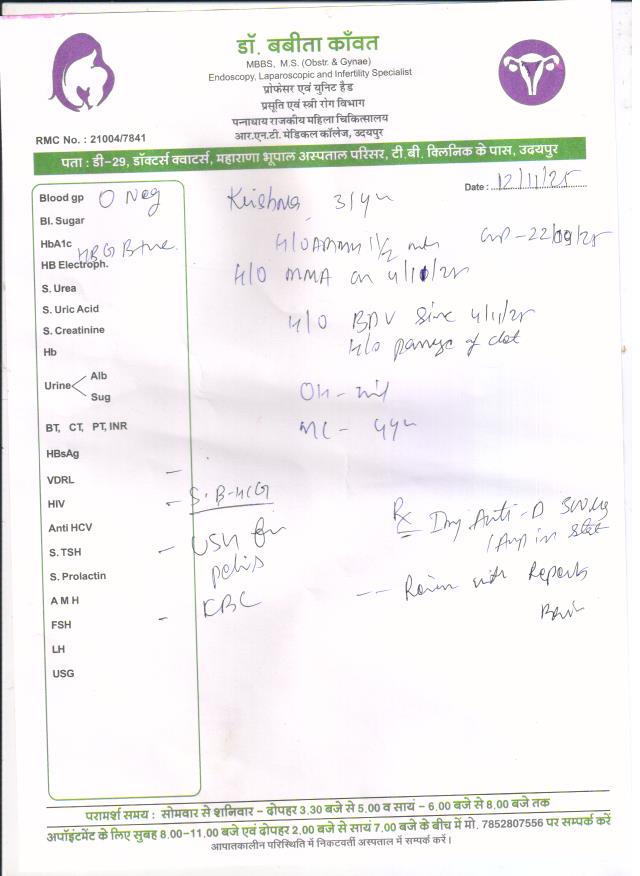 डॉ. बबीता काँवत
MBBS, M.S. (Obstr. & Gynae)
Endoscopy, Laparoscopic and Infertility Specialist
प्रोफेसर एवं युनिट हैड
प्रसूति एवं स्त्री रोग विभाग
पन्नाधाय राजकीय महिला चिकित्सालय
आर.एन.टी. मेडिकल कॉलेज, उदयपुर
RMC No. : 21004/7841
पता : डी-29, डॉक्टर्स क्वाटर्स, महाराणा भूपाल अस्पताल परिसर, टी.बी. क्लिनिक के पास, उदयपुर
Date : 12/11/25
Blood gp O Neg
Krishna 31yr
Bl. Sugar
HbA1c
H/O 1 1/2 - 22/09/25
HB Electroph.
H/O MMA on 4/10/25
S. Urea
S. Uric Acid
H/O BPV since 4/11/25
S. Creatinine
H/O passage of clot
Hb
Urine Alb
Sug
OH - nil
BT, CT, PT, INR
MC - 4yr
HBsAg
VDRL
HIV
- S. B-HCG
Rx Inj Anti-D 300 ug
Anti HCV
1 Amp im stat
S. TSH
- USG for
pelvis
S. Prolactin
-- with Reports
A M H
CBC
FSH
LH
USG
परामर्श समय : सोमवार से शनिवार - दोपहर 3.30 बजे से 5.00 व सायं - 6.00 बजे से 8.00 बजे तक
अपॉइंटमेंट के लिए सुबह 8.00-11.00 बजे एवं दोपहर 2.00 बजे से सायं 7.00 बजे के बीच में मो. 7852807556 पर सम्पर्क करें
आपातकालीन परिस्थिति में निकटवर्ती अस्पताल में सम्पर्क करें।